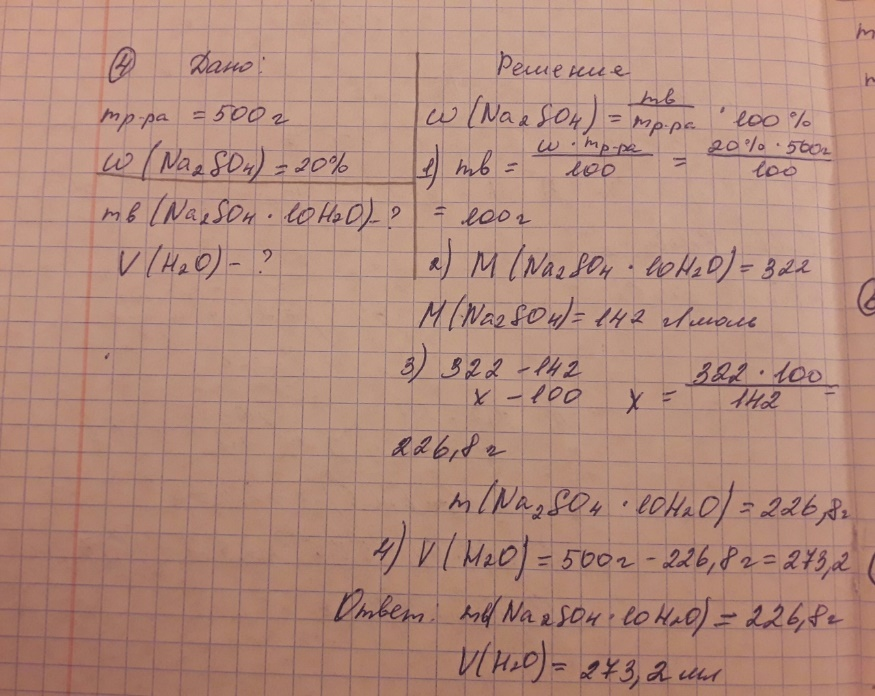 ④ Дано:
mр-ра = 500г
ω (Na₂SO₄) = 20%
mв (Na₂SO₄ · 10H₂O) - ?
V (H₂O) - ?
Решение
ω (Na₂SO₄) = mв / mр-ра · 100%
1) mв = ω · mр-ра / 100 = 20% · 500г / 100
= 100г
2) M (Na₂SO₄ · 10H₂O) = 322
M (Na₂SO₄) = 142 г/моль
3) 322 - 142
x - 100 x = 322 · 100 / 142 =
226,8 г
m (Na₂SO₄ · 10H₂O) = 226,8г
4) V (H₂O) = 500г - 226,8г = 273,2
Ответ: mв(Na₂SO₄ · 10H₂O) = 226,8г
V(H₂O) = 273,2 мл